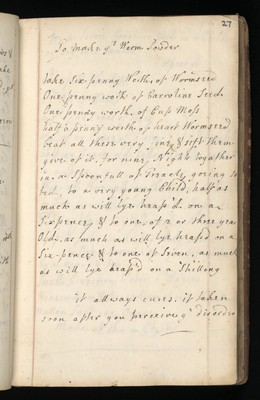 27
To make yᵉ Worm Powder
take Six penny Worth of Wormseed
One penny worth of Caroline Seeds
One penny worth of Cup Moss
half a penny worth of heart Wormseed
beat all these very fine & sift them
give of it for nine Nights together
in a Spoonfull of Treacle, going to
bed, to a very young Child, half as
much as will lye heap'd on a
Sixpence, & to one, of 2 or three year
Old, as much as will lye heap'd on a
Six-pence & to one of Seven, as much
as will lye heap'd on a Shilling
it allways cures, if taken
soon after you perceive yᵉ disorder